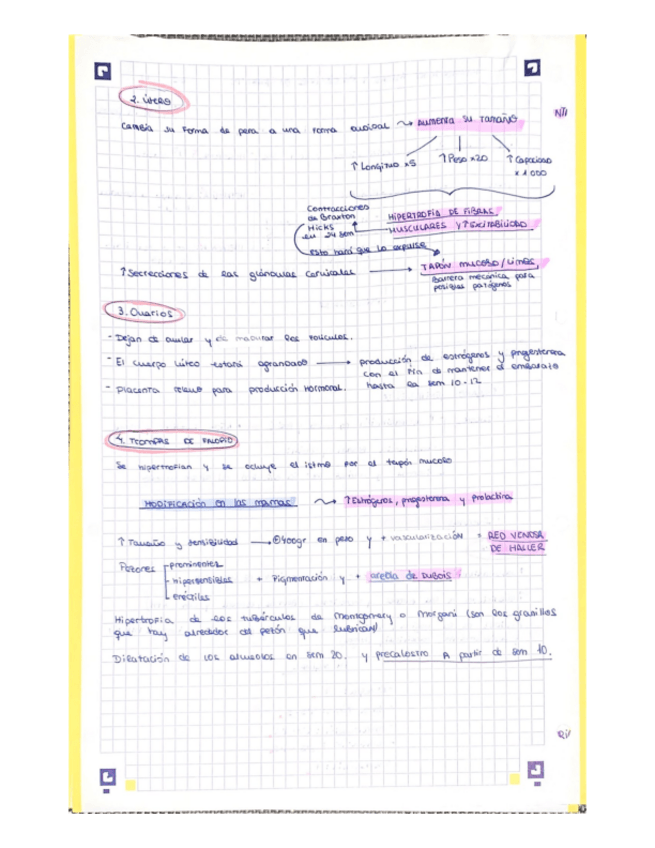 2. ÚTERO
Cambia su forma de pera a una forma ovoidal → AUMENTA SU TAMAÑO
↑ Longitud x5 ↑ Peso x20 ↑ Capacidad
x 1000
Contracciones
de Braxton
Hicks
en 24 sem
HIPERTROFIA DE FIBRAS
MUSCULARES Y ↑ EXCITABILIDAD
esto hará que lo expulse
↑ Secreciones de las glándulas cervicales → TAPÓN MUCOSO / LIMOS
Barrera mecánica para
posibles patógenos
3. Ovarios
- Dejan de ovular y de madurar los folículos.
- El cuerpo lúteo estará agrandado → producción de estrógenos y progesterona
con el fin de mantener el embarazo
hasta la sem 10-12
- Placenta relevo para producción hormonal.
4. TROMPAS DE FALOPIO
Se hipertrofian y se ocluye el istmo por el tapón mucoso
MODIFICACIÓN en las mamas → ↑ Estrógenos, progesterona y Prolactina
↑ Tamaño y sensibilidad → 400gr en peso y + vascularización = RED VENOSA
DE HALLER
Pezones prominentes
- hipersensibles + Pigmentación y + areola de DUBOIS
eréctiles
Hipertrofia de los tubérculos de Montgomery o Morgani (son los granillos
que hay alrededor del pezón que lubrican)
Dilatación de los alveolos en sem 20. y precalostro A partir de sem 10.